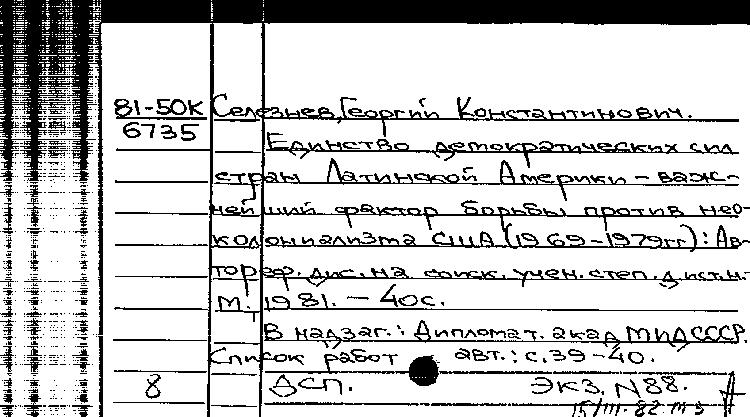 81-50К Селезнев, Георгий Константинович.
6735
Единство демократических сил
стран Латинской Америки - важ-
нейший фактор борьбы против нео-
колониализма США (1969-1979гг): Ав-
тореф. дис. на соиск. учен. степ. д.ист.н.
М. 1981. - 40с.
В надзаг.: Дипломат. акад МИД СССР.
Список работ авт.: с.39-40.
8 ДСП. Экз. N88.
15/III-82